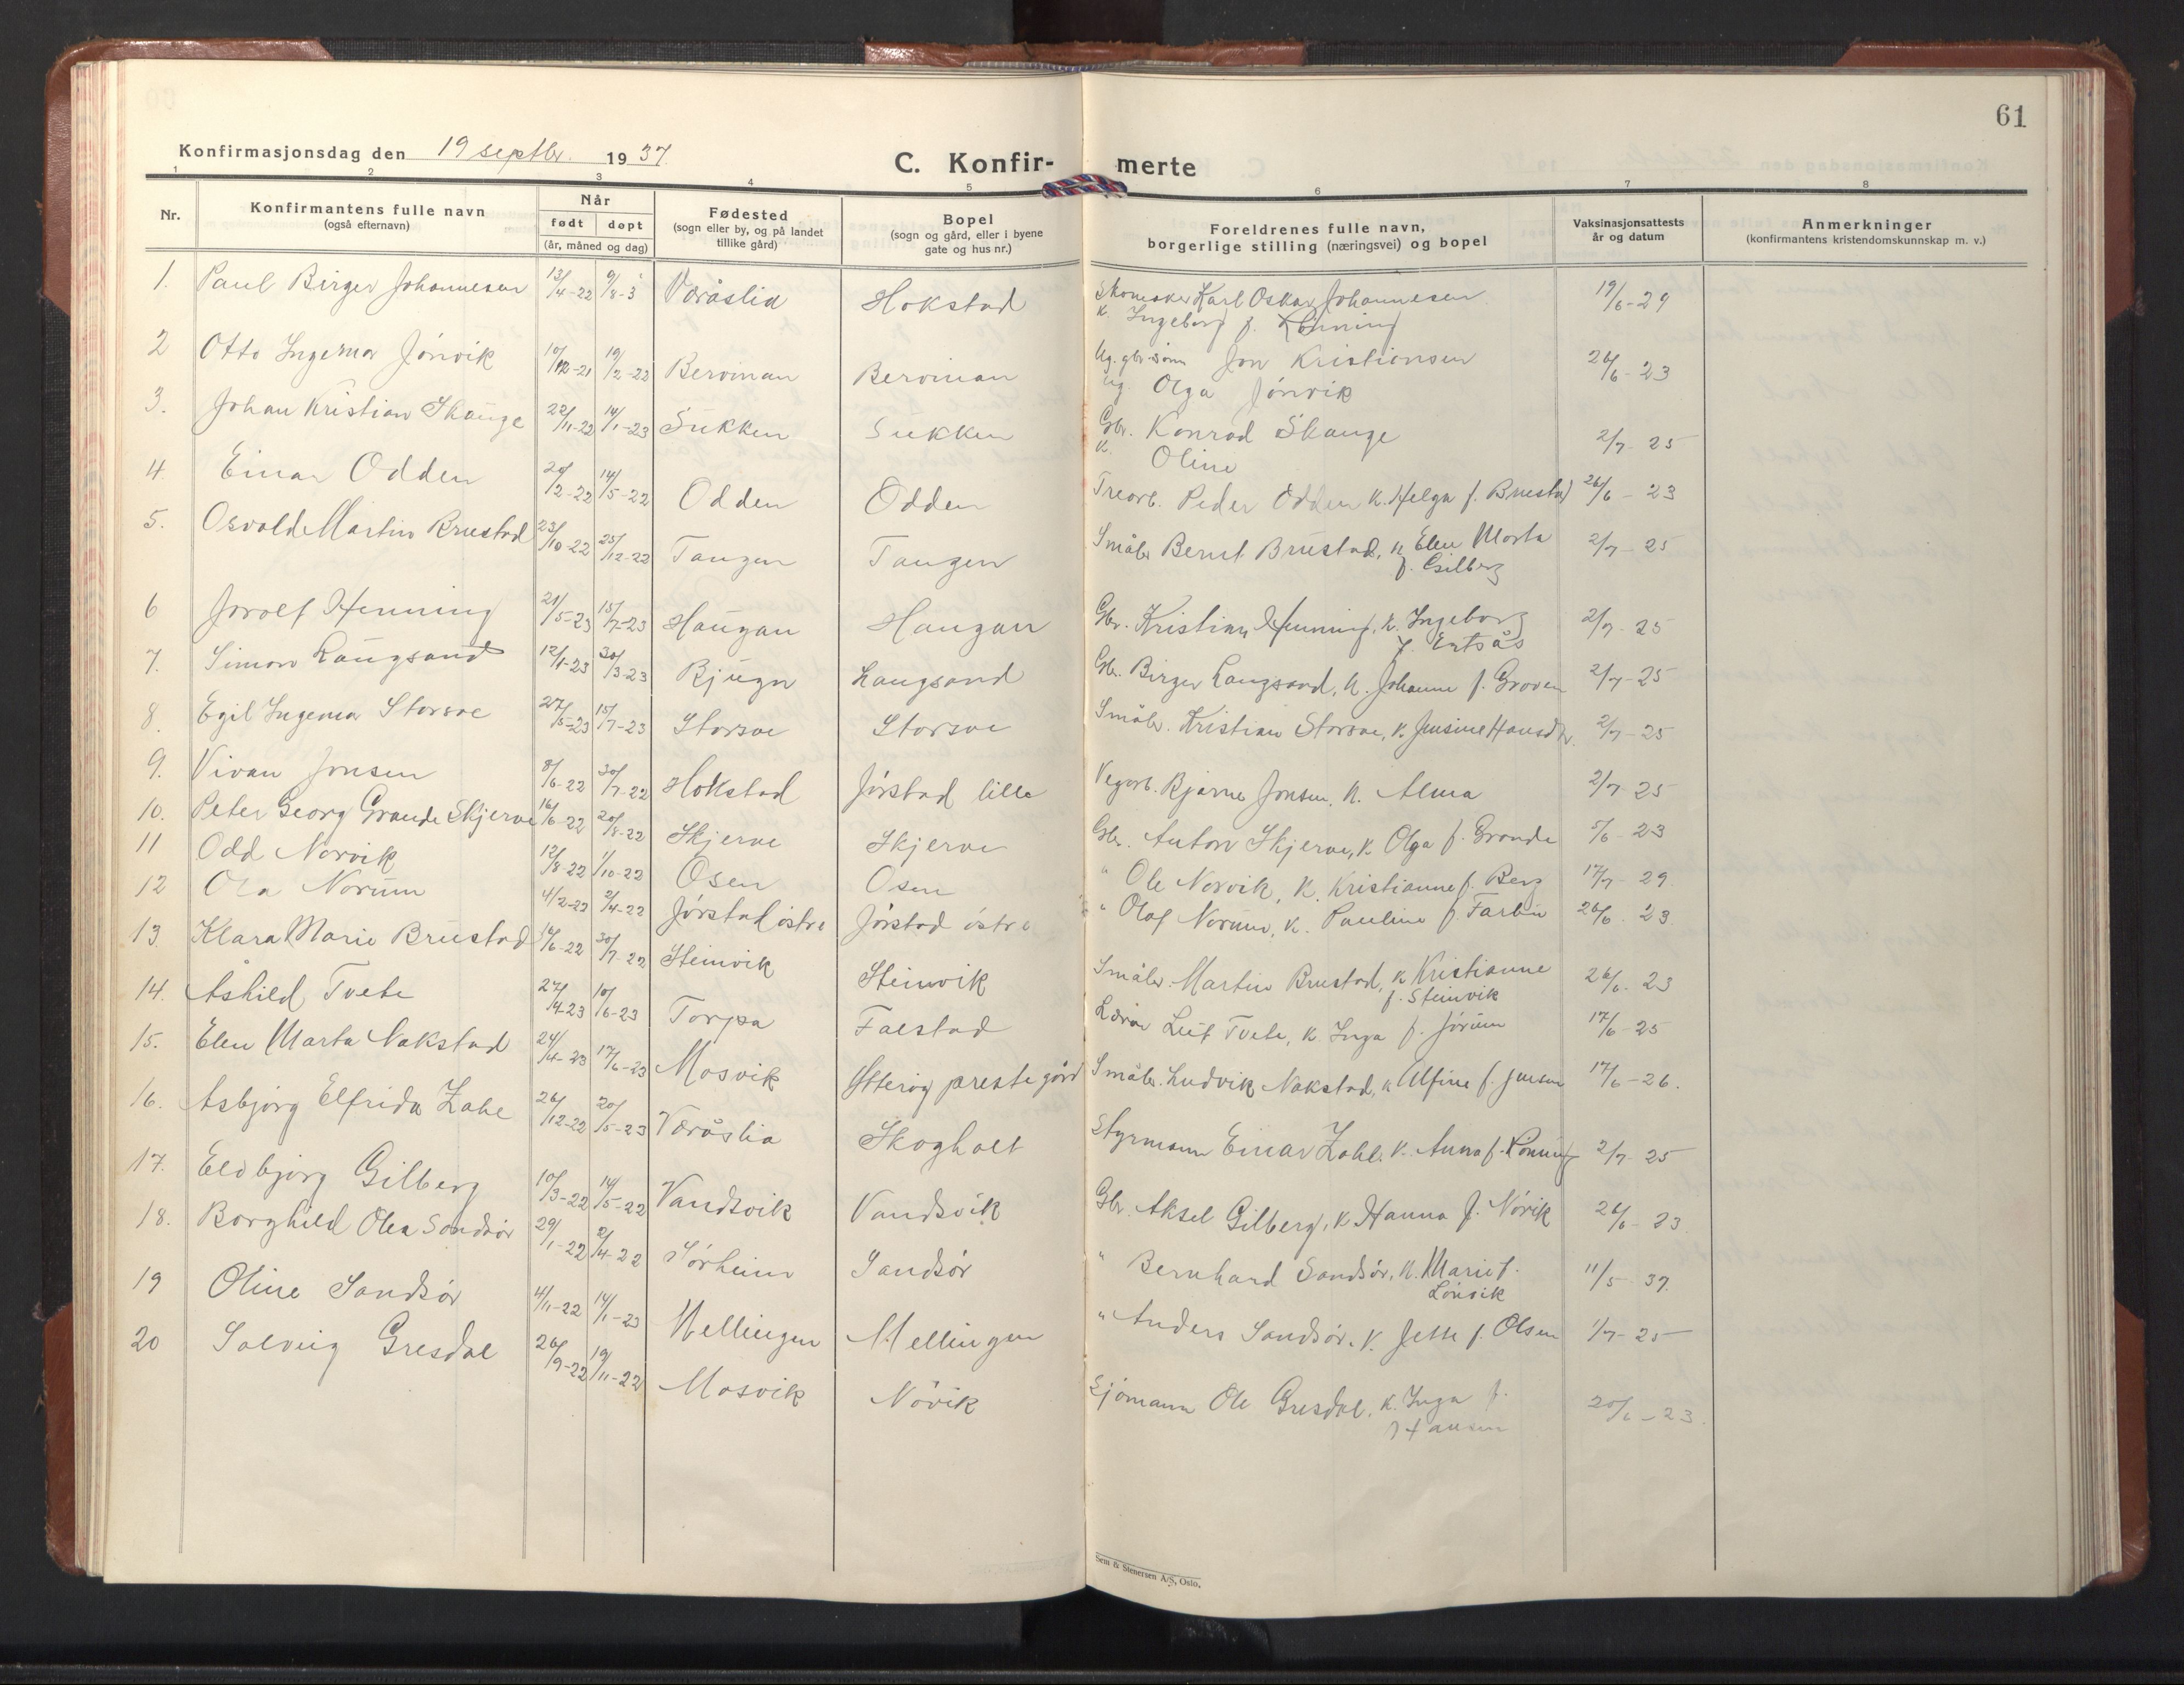 61
Konfirmasjonsdag den 19 septbr. 1937.
C. Konfir- merte
1 2 3 4 5 6 7 8
Nr.
Konfirmantens fulle navn
(også efternavn)
Når
født døpt
(år, måned og dag)
Fødested
(sogn eller by, og på landet
tillike gård)
Bopel
(sogn og gård, eller i byene
gate og hus nr.)
Foreldrenes fulle navn,
borgerlige stilling (næringsvei) og bopel
Vaksinasjonsattests
år og datum
Anmerkninger
(konfirmantens kristendomskunnskap m. v.)
1. Paul Birger Johannesen 13/4-22 9/8-3 Väråslia Hokstad Skomaker Karl Oskar Johannesen 19/6-29
k. Ingeborg f. Rönning
2 Otto Ingemar Jönvik 10/12-21 19/2-22 Beroman Beroman Ug. gbr-sönn Jon Kristiansen 26/6-23
ug. Olga Jönvik
3. Johan Kristian Skauge 22/11-22 14/1-23 Sukken Sukken Gbr. Konrad Skauge 2/7-25
k. Oline
4. Einar Odden 20/2-22 14/5-22 Odden Odden Trearb. Peder Odden k. Helga f. Brustad 26/6-23
5. Osvald Martin Brustad 23/10-22 25/12-22 Tangen Tangen Småbr. Bernt Brustad, k. Elen Marta 2/7-25
f. Gilberg
6 Jorolf Henning 21/5-23 15/7-23 Haugan Haugan Gbr. Kristian Henning, k. Ingeborg 2/7-25
f. Ertsås
7. Simon Langsand 12/1-23 30/3-23 Bjugn Langsand Gbr. Birger Langsand, k. Johanne f. Groven 2/7-25
8. Egil Ingemar Storsve 27/5-23 15/7-23 Storsve Storsve Småbr. Kristian Storsve, k. Jensine Hansdtr. 2/7-25
9. Vivan Jonsen 8/6-22 30/7-22 Hokstad Jörstad lille Vegarb. Bjarne Jonsen, k. Alma 2/7-25
10. Peter Georg Grande Skjerve 16/6-22 20/8-22 Skjerve Skjerve Gbr. Anton Skjerve, k. Olga f. Grande 5/6-23
11 Odd Norvik 12/8-22 1/10-22 Osen Osen " Ole Norvik, k. Kristianne f. Berg 17/7-29
12 Ola Norum 4/2-22 2/4-22 Jörstad östre Jörstad östre " Olaf Norum, k. Pauline f. Farbu 26/6-23.
13. Klara Marie Brustad 14/6-22 30/7-22 Steinvik Steinvik Småbr. Martin Brustad, k. Kristianne 26/6-23
f. Steinvik
14. Åshild Tvete 27/4-23 10/6-23 Torpa Falstad Lærer Leif Tvete, k. Inga f. Jörum 17/6-25
15. Elen Marta Nakstad 24/4-23 17/6-23 Mosvik Ytteröy prestegård Småbr. Ludvik Nakstad, k. Alfine f. Jensen 17/6-26.
16. Asbjörg Elfrida Zahl 26/12-22 20/5-23 Väråslia Skogholt Styrmann Einar Zahl. k. Anna f. Rönning 2/7-25
17. Eldbjörg Gilberg 10/3-22 14/5-22 Vandsvik Vandsvik Gbr. Aksel Gilberg, k. Hanna f. Növik 26/6-23.
18. Borghild Olea Sandsör 29/1-22 2/4-22 Sörheim Sandsör " Bernhard Sandsör, k. Marie f. 11/5-37.
Lönvik
19 Oline Sandsör 4/11-22 14/1-23 Mellingen Mellingen " Anders Sandsör, k. Jette f. Olsen 1/7-25
20 Solveig Gresdal 26/9-22 19/11-22 Mosvik Növik Sjömann Ole Gresdal, k. Inga f. 20/6-23.
Hansen
Sem & Stenersen A/S, Oslo.